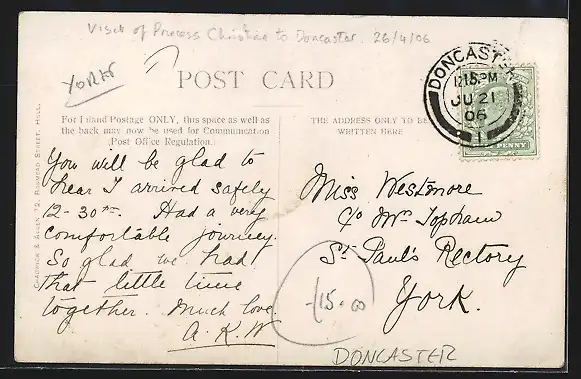 Visit of Princess Christian to Doncaster. 26/4/06
YORK
POST CARD
For Inland Postage ONLY, this space as well as
the back may now be used for Communication
(Post Office Regulation.)
THE ADDRESS ONLY TO BE
WRITTEN HERE
DONCASTER
12.15PM
JU 21
06
1
PENNY
You will be glad to
hear I arrived safely
12-30pm. Had a very
comfortable journey.
So glad we had
that little time
together. Much love.
A. K. W
Miss Westmore
c/o Mrs Topham
St Paul's Rectory
York.
£15.00
DONCASTER
CHADWICK & ALLEN, 72, STREET, HULL.